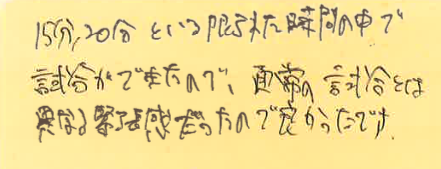 15分,20分 という限られた時間の中で
試合ができたので、通常の 試合とは
異なる緊張感だったので良かったです。